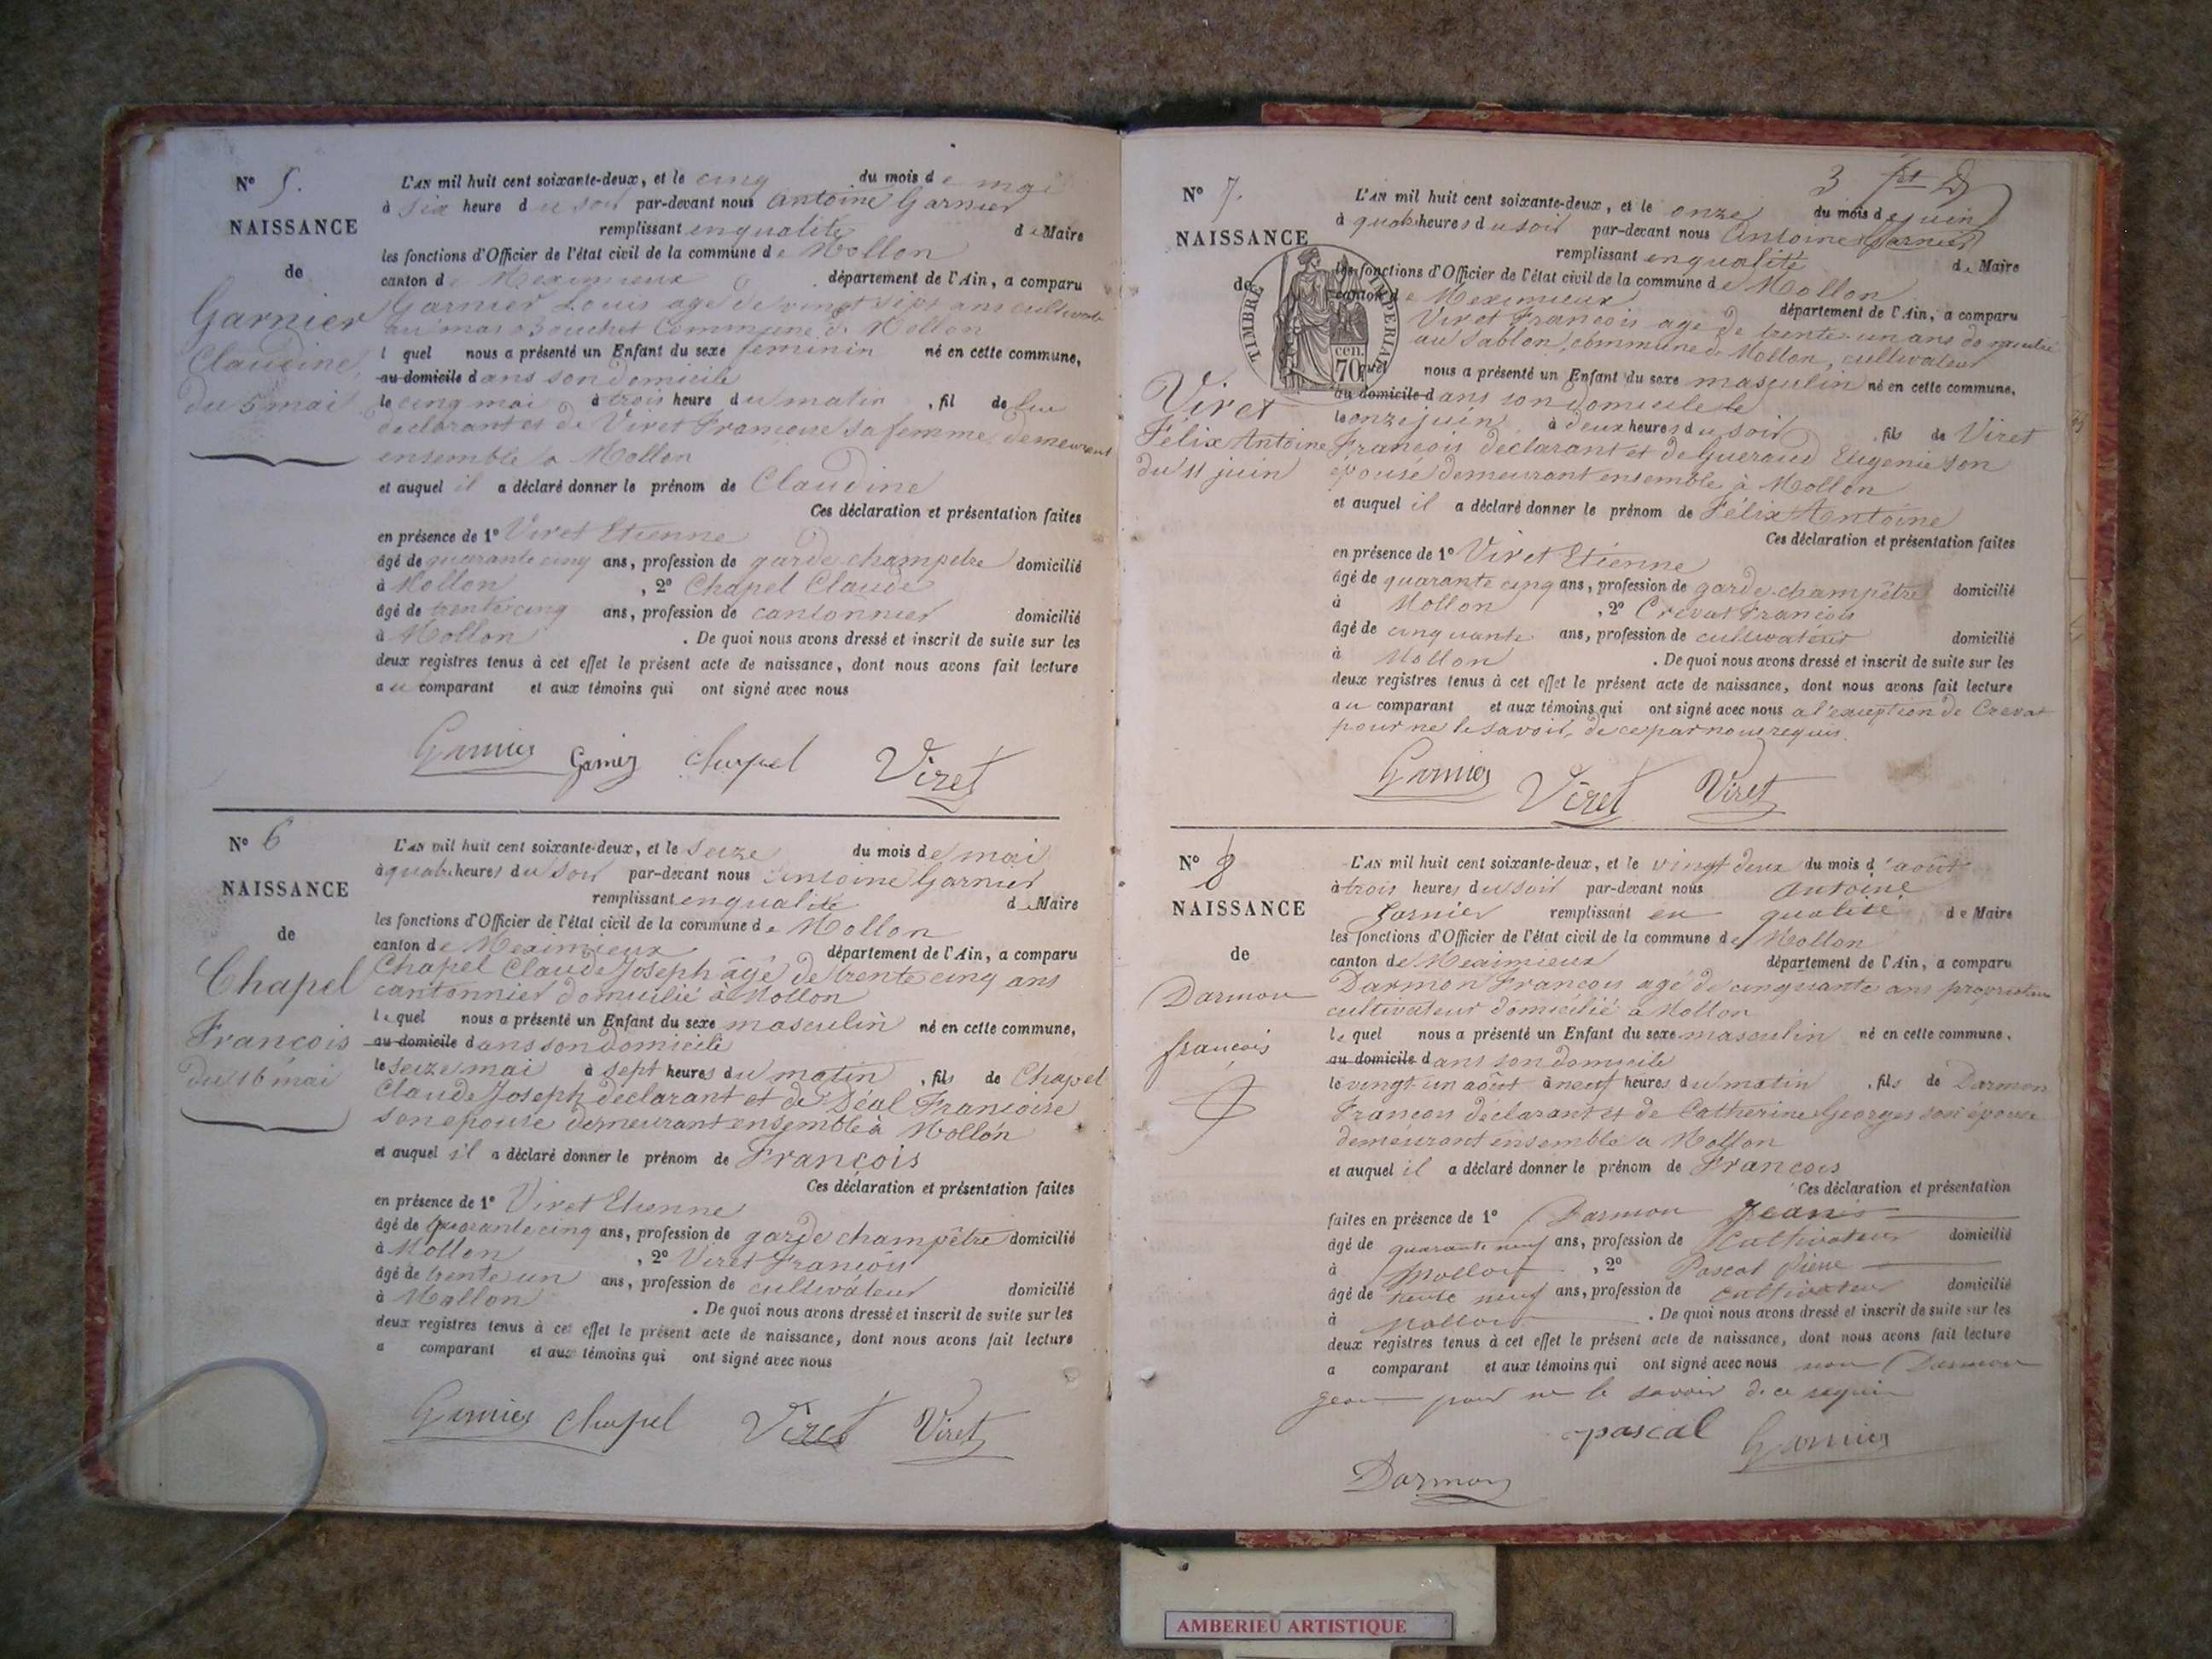 N° 5.
NAISSANCE
de
Garnier
Claudine
du 5 mai
L'AN mil huit cent soixante-deux, et le cinq du mois de mai
à six heure du soir par-devant nous Antoine Garnier
remplissant en qualité de Maire
les fonctions d'Officier de l'état civil de la commune de Mollon
canton de Meximieux département de l'Ain, a comparu
Garnier Louis agé de vingt sept ans cultivat
au mas Bouchet Commune de Mollon
l quel nous a présenté un Enfant du sexe feminin né en cette commune,
au domicile dans son domicile
le cinq mai à trois heure du matin , fil de lui
declarant et de Viret Francoise sa femme demeurant
ensemble a Mollon
et auquel il a déclaré donner le prénom de Claudine
Ces déclaration et présentation faites
en présence de 1° Viret Etienne
âgé de quarante cinq ans, profession de garde champetre domicilié
à Mollon , 2° Chapel Claude
âgé de trente cinq ans, profession de cantonnier domicilié
à Mollon . De quoi nous avons dressé et inscrit de suite sur les
deux registres tenus à cet effet le présent acte de naissance, dont nous avons fait lecture
au comparant et aux témoins qui ont signé avec nous
Garnier Garnier chapel Viret
N° 6
NAISSANCE
de
Chapel
François
du 16 mai
L'AN mil huit cent soixante-deux, et le seize du mois de mai
à quatre heures du soir par-devant nous Antoine Garnier
remplissant en qualité de Maire
les fonctions d'Officier de l'état civil de la commune de Mollon
canton de Meximieux département de l'Ain, a comparu
Chapel Claude Joseph âgé de trente cinq ans
cantonnier domicilié à Mollon
le quel nous a présenté un Enfant du sexe masculin né en cette commune,
au domicile dans son domicile
le seize mai à sept heures du matin , fils de Chapel
Claude Joseph declarant et de Déal Francoise
son epouse demeurant ensemble à Mollon
et auquel il a déclaré donner le prénom de François
Ces déclaration et présentation faites
en présence de 1° Viret Etienne
âgé de quarante cinq ans, profession de garde champêtre domicilié
à Mollon , 2° Viret François
âgé de trente un ans, profession de cultivateur domicilié
à Mollon . De quoi nous avons dressé et inscrit de suite sur les
deux registres tenus à cet effet le présent acte de naissance, dont nous avons fait lecture
a comparant et aux témoins qui ont signé avec nous
Garnier chapel Viret Viret
3
N° 7.
NAISSANCE
de
TIMBRE IMPERIAL
70 cen.
Viret
Félix Antoine
du 11 juin
L'AN mil huit cent soixante-deux, et le onze du mois de juin
à quatre heures du soir par-devant nous Antoine Garnier
remplissant en qualité de Maire
les fonctions d'Officier de l'état civil de la commune de Mollon
canton de Meximieux département de l'Ain, a comparu
Viret François agé de trente un ans domicilié
au Sablon, commune de Mollon, cultivateur
quel nous a présenté un Enfant du sexe masculin né en cette commune,
au domicile dans son domicile le
le onze juin à deux heures du soir , fils de Viret
François declarant et de Gueraud Eugenie son
épouse demeurant ensemble à Mollon
et auquel il a déclaré donner le prénom de Félix Antoine
Ces déclaration et présentation faites
en présence de 1° Viret Etienne
âgé de quarante cinq ans, profession de garde champêtre domicilié
à Mollon , 2° Crevat François
âgé de cinquante ans, profession de cultivateur domicilié
à Mollon . De quoi nous avons dressé et inscrit de suite sur les
deux registres tenus à cet effet le présent acte de naissance, dont nous avons fait lecture
au comparant et aux témoins qui ont signé avec nous a l'exception de Crevat
pour ne le savoir, de ce par nous requis.
Garnier Viret Viret
N° 8
NAISSANCE
de
Darmon
françois
L'AN mil huit cent soixante-deux, et le vingt deux du mois d'août
à trois heures du soir par-devant nous Antoine
Garnier remplissant en qualité de Maire
les fonctions d'Officier de l'état civil de la commune de Mollon
canton de Meximieux département de l'Ain, a comparu
Darmon François agé de cinquante ans propriétaire
cultivateur domicilié à Mollon
le quel nous a présenté un Enfant du sexe masculin né en cette commune,
au domicile dans son domicile
le vingt un août à neuf heures du matin , fils de Darmon
François déclarant et de Catherine Georges son épouse
demeurant ensemble a Mollon
et auquel il a déclaré donner le prénom de François
Ces déclaration et présentation
faites en présence de 1° Darmon Jean
âgé de quarante neuf ans, profession de Cultivateur domicilié
à Mollon , 2° Pascal Pierre
âgé de trente neuf ans, profession de cultivateur domicilié
à Mollon . De quoi nous avons dressé et inscrit de suite sur les
deux registres tenus à cet effet le présent acte de naissance, dont nous avons fait lecture
a comparant et aux témoins qui ont signé avec nous non Darmon
Jean pour ne le savoir de ce requis
pascal Garnier
Darmon
AMBERIEU ARTISTIQUE